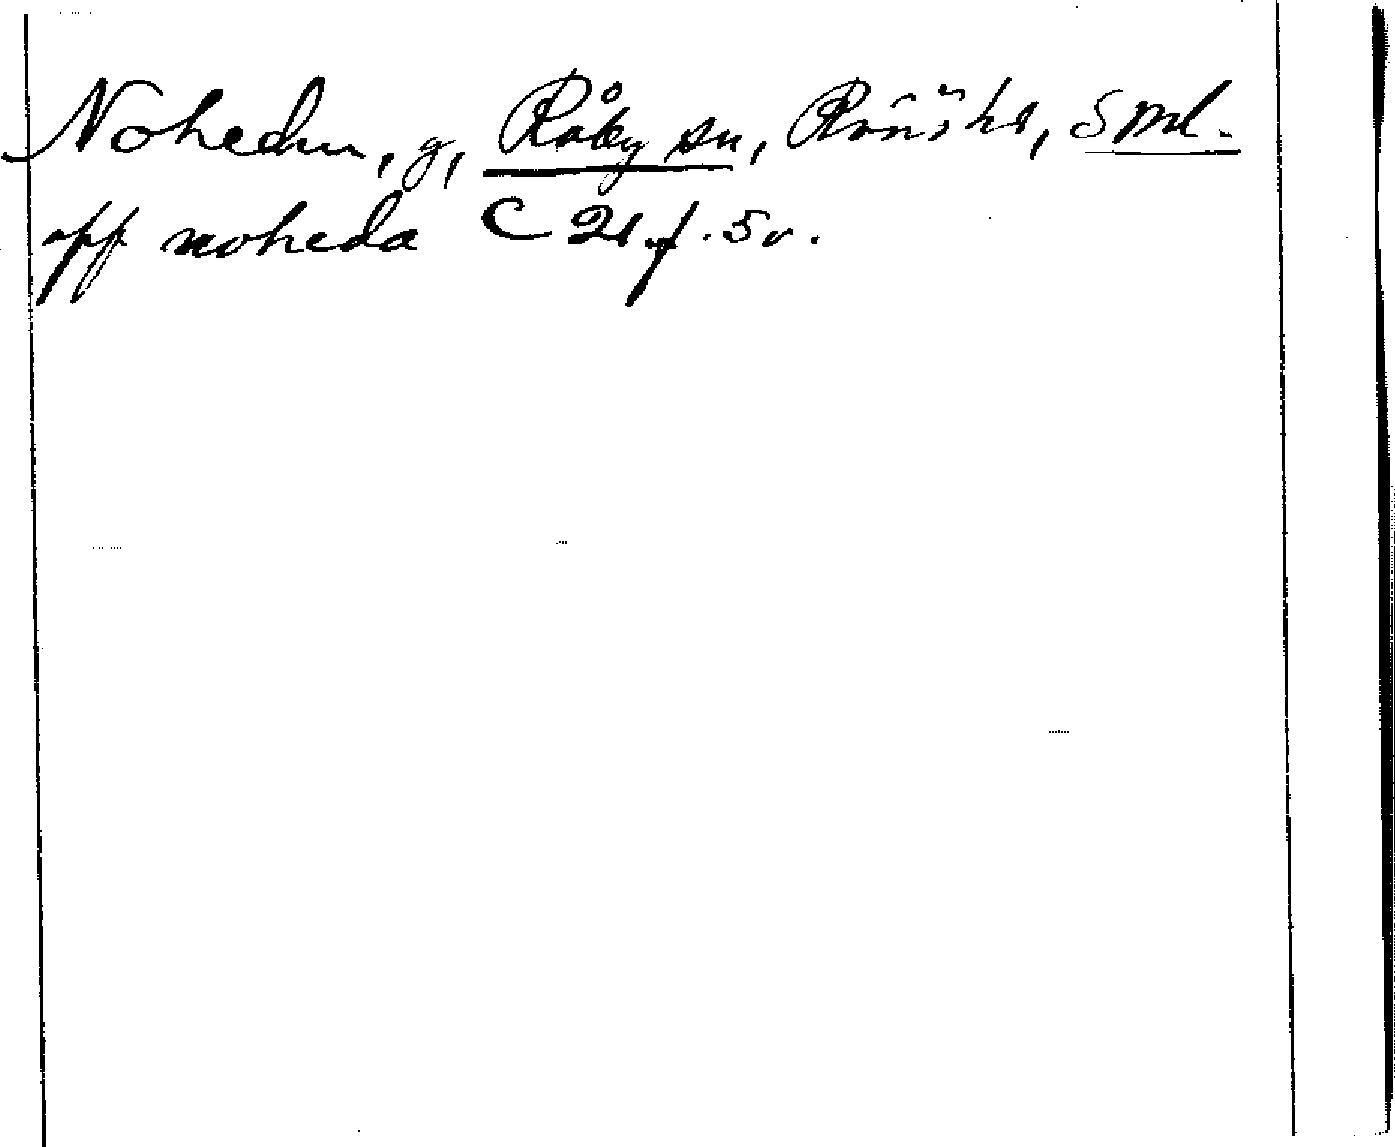 Noheden, g, Råby sn, Rönöhd, Sml.
aff noheda C 21 f. 5v.